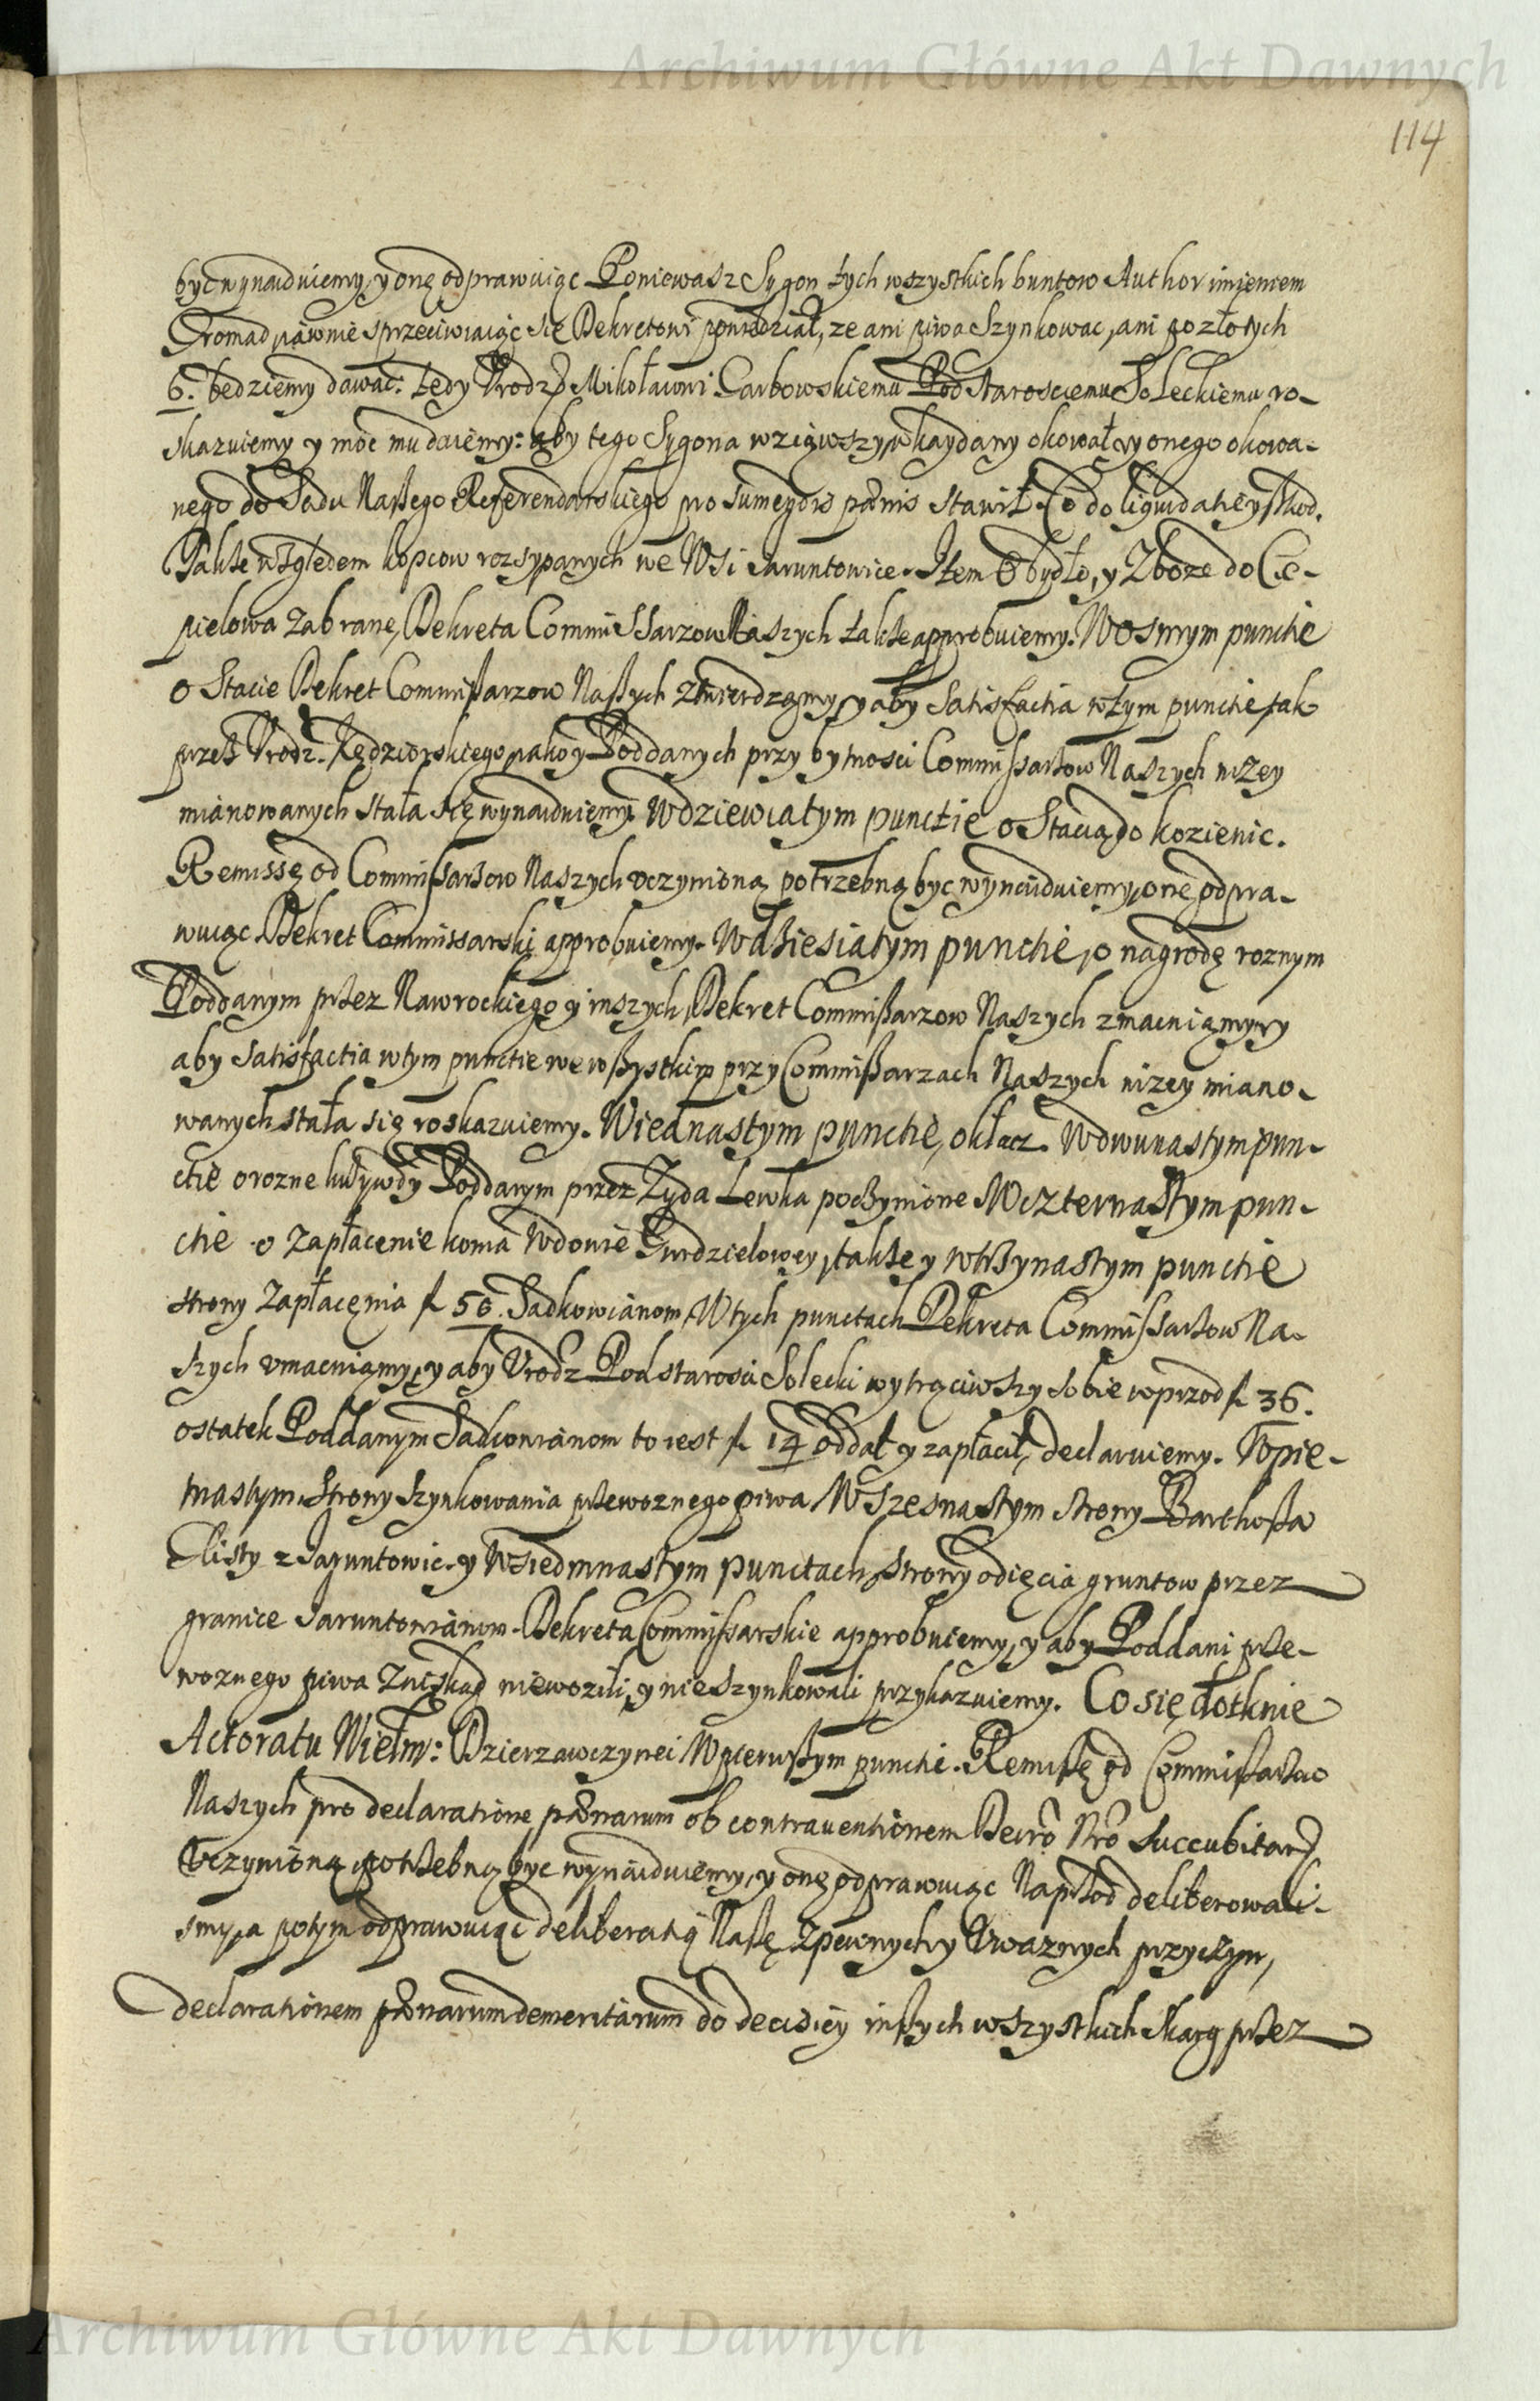 Archiwum Główne Akt Dawnych
114
być wynaiduiemy, y onę odprawuiąc Poniewasz Sygon tych wszystkich buntow Author imieniem
Gromad iawnie sprzeciwiaiąc się Dekretowi powiedział, ze ani piwa szynkowac, ani po złotych
6. będziemy dawac: tedy Vrodz. Mikołaiowi Garbowskiemu Pod Starosciemu Soleckiemu ro-
skazuiemy y moc mu daiemy: aby tego Sygona wziąwszy w kaydany okował, y onego okowa-
nego do Sądu Naszego Referendarskiego pro sumendis pœnis stawił. Co do liquidatiey szkod.
Także względem kopcow rozsypanych we Wsi Jaruntowice. Item o bydło, y Zboze do Cie-
pielowa zabrane, Dekreta Commissarzow Naszych także approbuiemy. W osmym punctie
o Stacie Dekret Commissarzow Naszych ztwierdzamy, y aby Satisfactia w tym punctie tak
przez Vrodz. Kędziorskiego iako y Poddanych przy bytnosci Commissarzow Naszych nizey
mianowanych stała się wynaiduiemy. W dziewiatym punctie o Stacią do kozienic.
Remissę od Commissarzow Naszych vczynioną potrzebną byc wynaiduiemy, onę odpra-
wuiąc Dekret Commissarski approbuiemy. W dziesiatym punctie, o nagrodę roznym
Poddanym przez Nawrockiego y inszych, Dekret Commissarzow Naszych zmacniamy, y
aby Satisfactia w tym punctie we wszystkim przy Commissarzach Naszych nizey miano-
wanych stała się roskazuiemy. W iednastym punctie, o kłacz. W dwunastym pun-
ctie o rozne krzywdy Poddanym przez Zyda Lewka poczynione W czternastym pun-
ctie o zapłacenie konia Wdowie Gurdzielowey, także y w trzynastym punctie
strony zapłacenia fl 50. Sadkowianom, W tych punctach Dekreta Commissarzow Na-
szych vmacniamy, y aby Vrodz Podstarosci Solecki wytrąciwszy sobie wprzod fl 36.
ostatek Poddanym Sadkowianom to iest fl. 14 oddał y zapłacił, declaruiemy. W pie-
tnastym, strony szynkowania przewoznego piwa W szesnastym strony Barthosza
Glisty z Jaruntowic. y W siedmnastym punctach, strony odięcia gruntow przez
granice Jaruntowianom. Dekreta Commissarskie approbuiemy, y aby Poddani prze-
woznego piwa znikąd niewozili, y nie szynkowali przykazuiemy. Co się dotknie
Actoratu Wielm: Dzierzawczynei W pierwszym punctie. Remissę od Commissarzow
Naszych pro declaratione pœnarum ob contrauentionem Decrō Nrō succubitar.
vczynioną potrzebną byc wynaiduiemy, y onę odprawuiąc Naprzod deliberowali-
smy, a potym odprawuiąc deliberatią Naszę z pewnych y Vwaznych przyczyn,
declarationem pœnarum demeritarum do decisiey inszych wszystkich skarg przez
Archiwum Główne Akt Dawnych